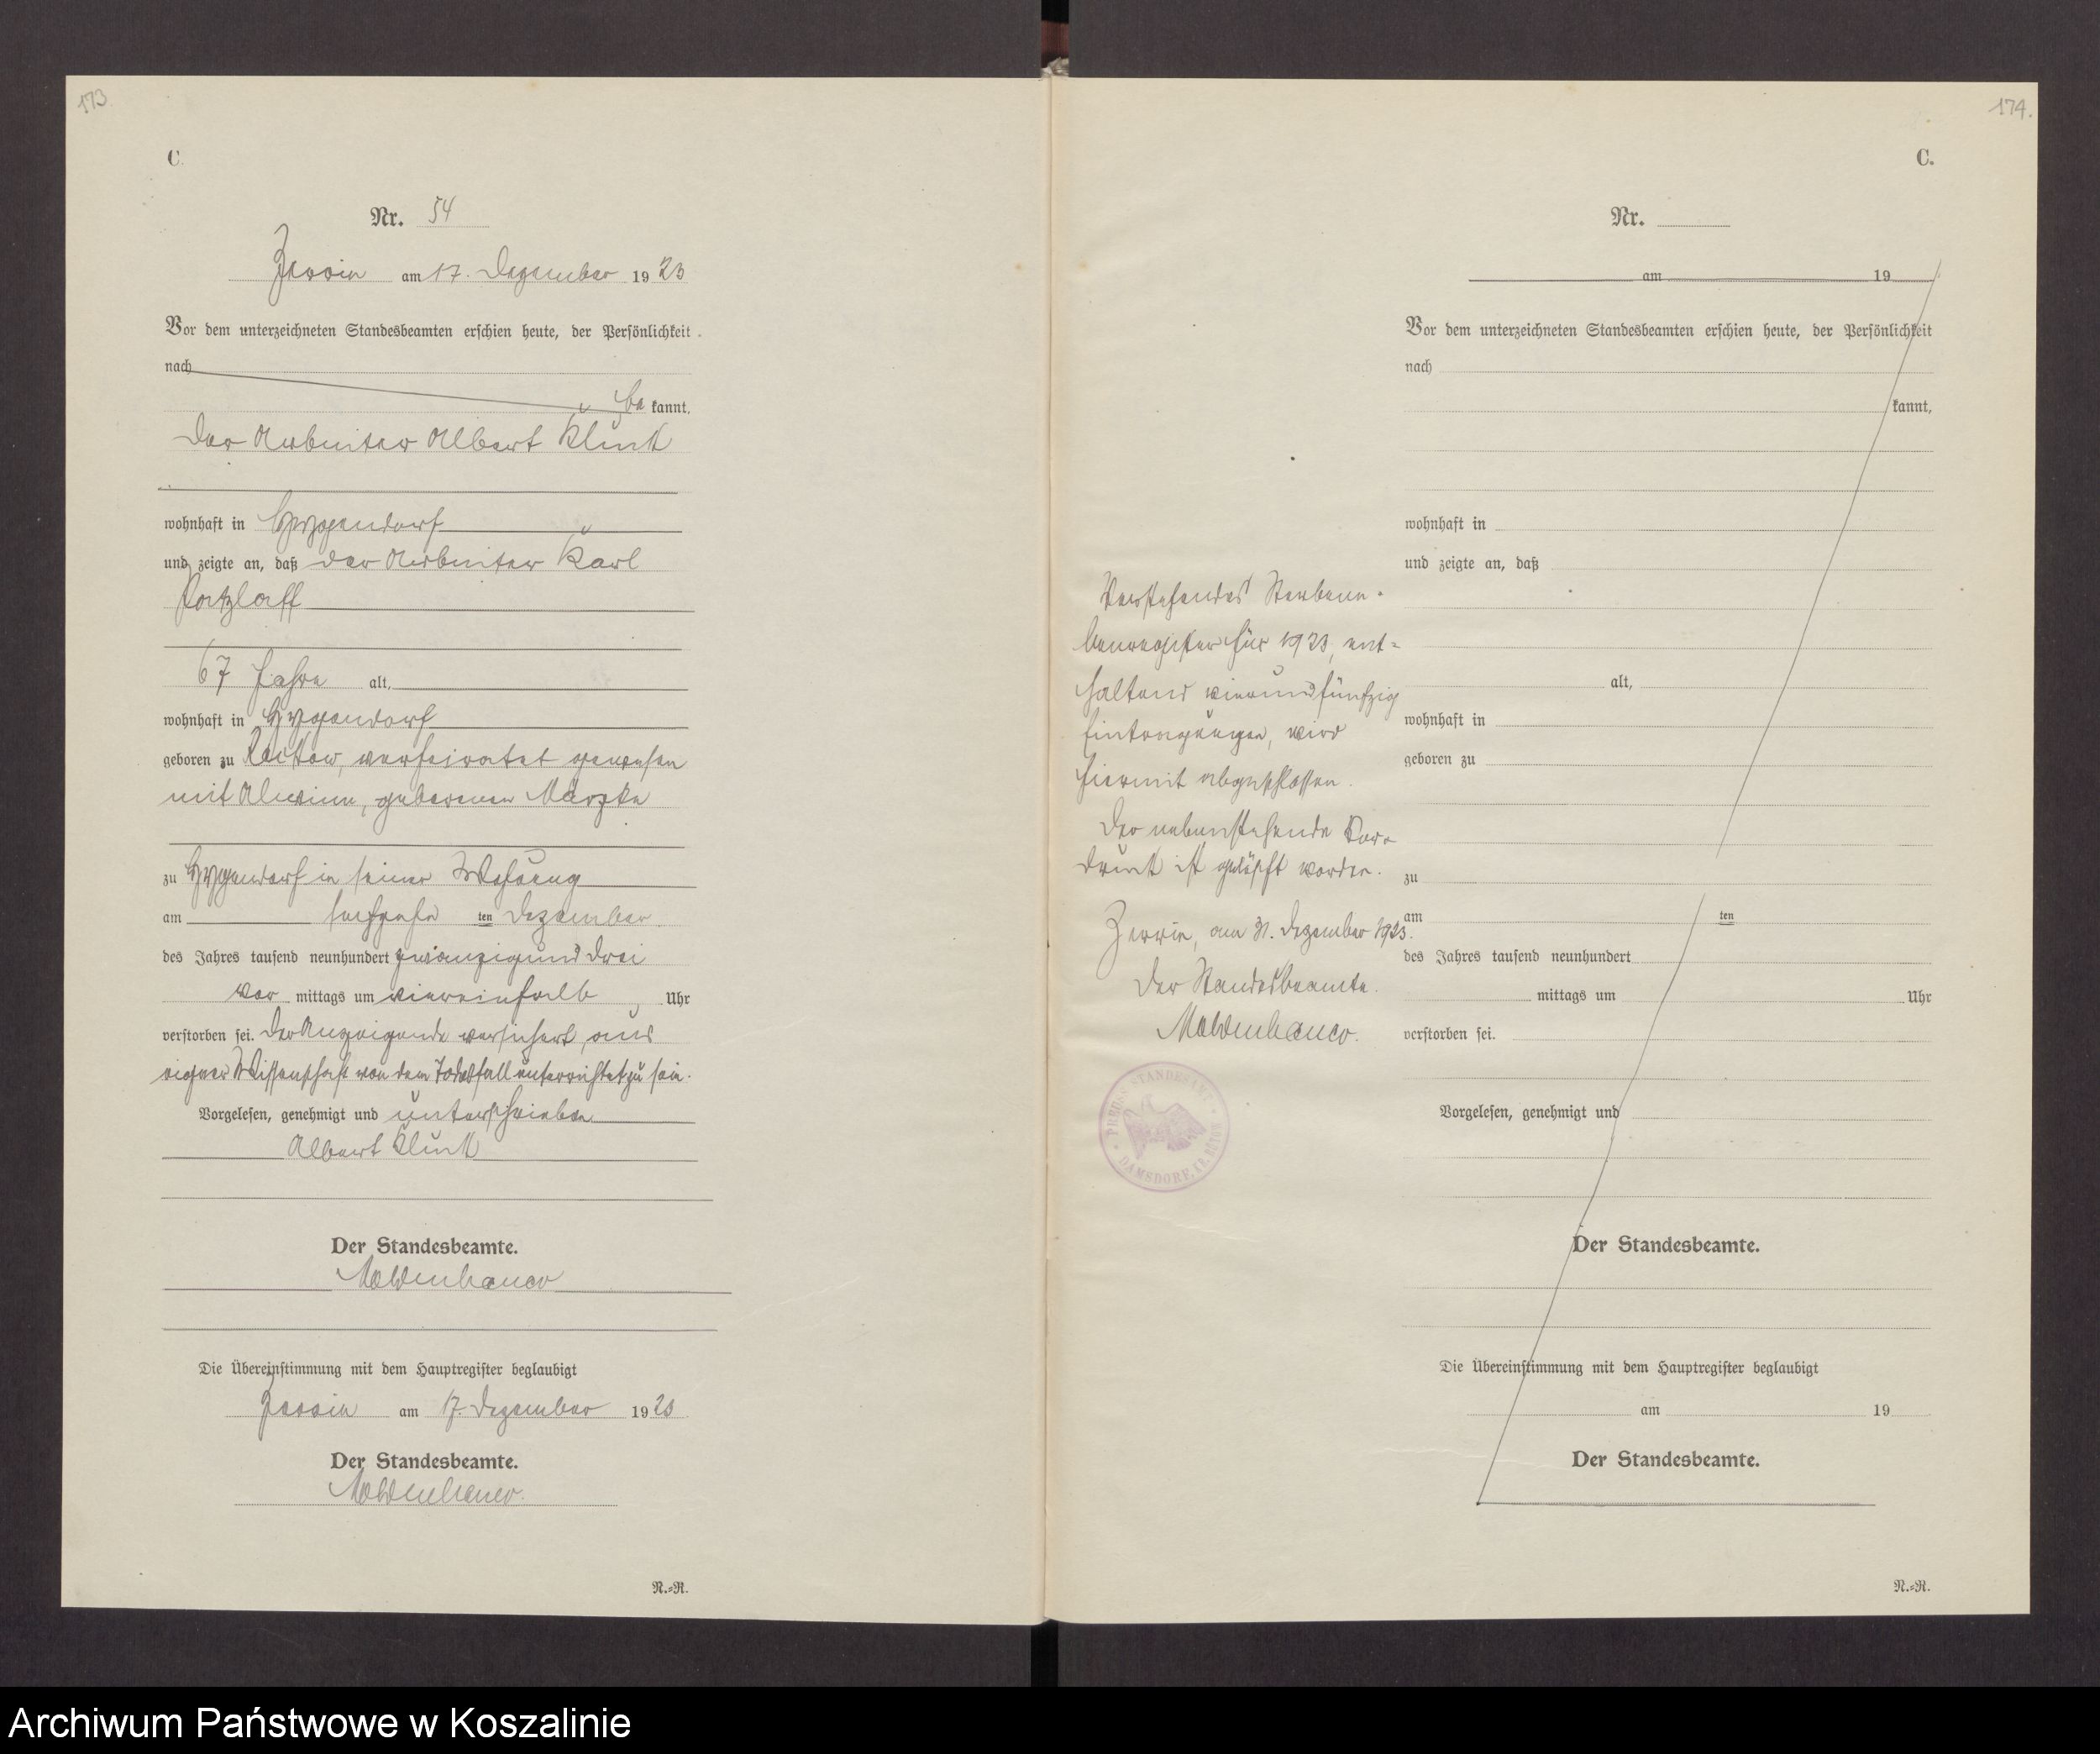 173
C.
Nr. 54
Zerrin am 17. Dezember 1923
Vor dem unterzeichneten Standesbeamten erschien heute, der Persönlichkeit
nach
be kannt,
der Arbeiter Albert Klunk
wohnhaft in
und zeigte an, daß der Arbeiter Karl
Patzlaff
67 Jahre alt,
wohnhaft in
geboren zu verheiratet gewesen
mit Alwine, geborenen
zu in seiner Wohnung
am sechzehn ten Dezember
des Jahres tausend neunhundert zwanzigund drei
vor mittags um viereinhalb Uhr
verstorben sei. Der Anzeigende versichert, aus
eigner Wissenschaft von dem Todesfall unterrichtet zu sein.
Vorgelesen, genehmigt und unterschrieben
Albert Klunk
Der Standesbeamte.
Moldenhauer
Die Übereinstimmung mit dem Hauptregister beglaubigt
Zerrin am 17. Dezember 1923
Der Standesbeamte.
Moldenhauer.
N.=R.
174.
C.
Nr.
am 19
Vor dem unterzeichneten Standesbeamten erschien heute, der Persönlichkeit
nach
kannt,
wohnhaft in
und zeigte an, daß
alt,
wohnhaft in
geboren zu
zu
am ten
des Jahres tausend neunhundert
mittags um Uhr
verstorben sei.
Vorgelesen, genehmigt und
Der Standesbeamte.
Die Übereinstimmung mit dem Hauptregister beglaubigt
am 19
Der Standesbeamte.
N.=R.
Vorstehendes Sterbene-
benregister für 1923, ent-
haltend vierundfünfzig
Eintragungen, wird
hiermit abgeschlossen.
Der nebenstehende Vor-
druck ist gelöscht worden.
Zerrin, am 31. Dezember 1923.
Der Standesbeamte.
Moldenhauer.
PREUSS. STANDESAMT
DAMSDORF, KR. BÜTOW
Archiwum Państwowe w Koszalinie